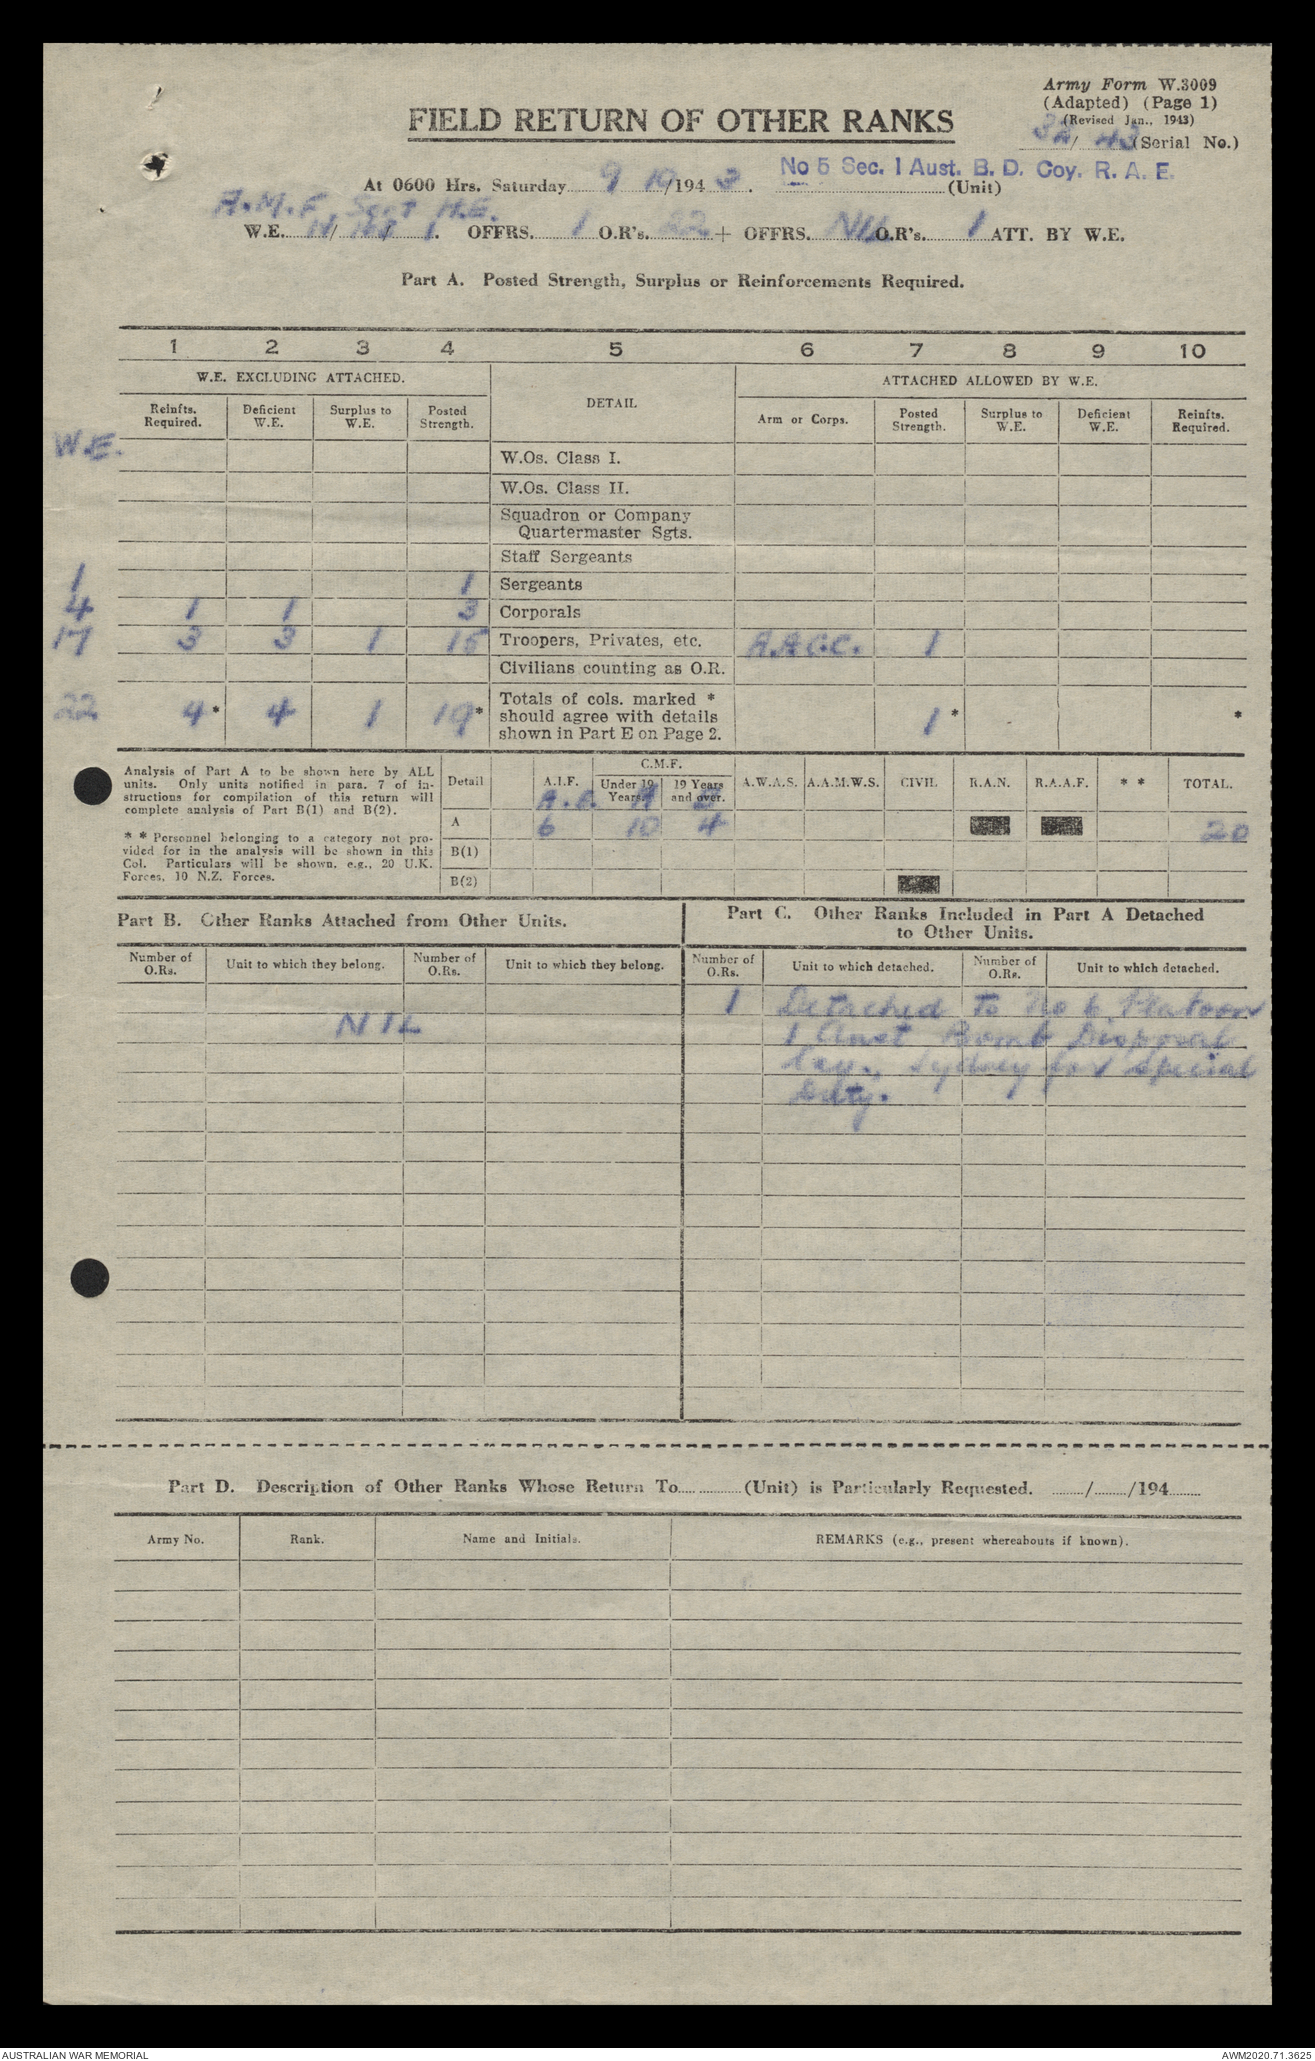 Army Form W.3009
(Adapted) (Page 1)
(Revised Jan., 1943)
32/43 (Serial No.)
FIELD RETURN OF OTHER RANKS
No 5 Sec. 1 Aust. B. D. Coy. R. A. E.
At 0600 Hrs. Saturday 9 10/1943. (Unit)
A.M.F.
W.E. 1. OFFRS. 1 O.R's. 22 + OFFRS. NIL O.R's. 1 ATT. BY W.E.
Part A. Posted Strength, Surplus or Reinforcements Required.
1 2 3 4 5 6 7 8 9 10
W.E. EXCLUDING ATTACHED. DETAIL ATTACHED ALLOWED BY W.E.
Reinfts. Required. Deficient W.E. Surplus to W.E. Posted Strength. Arm or Corps. Posted Strength. Surplus to W.E. Deficient W.E. Reinfts. Required.
W.E.
W.Os. Class I.
W.Os. Class II.
Squadron or Company
Quartermaster Sgts.
Staff Sergeants
1 1 Sergeants
4 1 1 3 Corporals
17 3 3 1 15 Troopers, Privates, etc. A.A.C.C. 1
Civilians counting as O.R.
22 4* 4 1 19* Totals of cols. marked * 1* *
should agree with details
shown in Part E on Page 2.
Analysis of Part A to be shown here by ALL
units. Only units notified in para. 7 of in-
structions for compilation of this return will
complete analysis of Part B(1) and B(2).
* * Personnel belonging to a category not pro-
vided for in the analysis will be shown in this
Col. Particulars will be shown, e.g., 20 U.K.
Forces, 10 N.Z. Forces.
C.M.F.
Detail A.I.F. Under 19 Years 19 Years and over. A.W.A.S. A.A.M.W.S. CIVIL R.A.N. R.A.A.F. * * TOTAL.
A 6 10 4 20
B(1)
B(2)
Part B. Other Ranks Attached from Other Units.
Part C. Other Ranks Included in Part A Detached
to Other Units.
Number of O.Rs. Unit to which they belong. Number of O.Rs. Unit to which they belong. Number of O.Rs. Unit to which detached. Number of O.Rs. Unit to which detached.
NIL
1 Detached to No 6 Platoon
1 Aust Bomb Disposal
Coy., Sydney for special
Duty.
Part D. Description of Other Ranks Whose Return To (Unit) is Particularly Requested. / /194
Army No. Rank. Name and Initials. REMARKS (e.g., present whereabouts if known).
AUSTRALIAN WAR MEMORIAL
AWM2020.71.3625